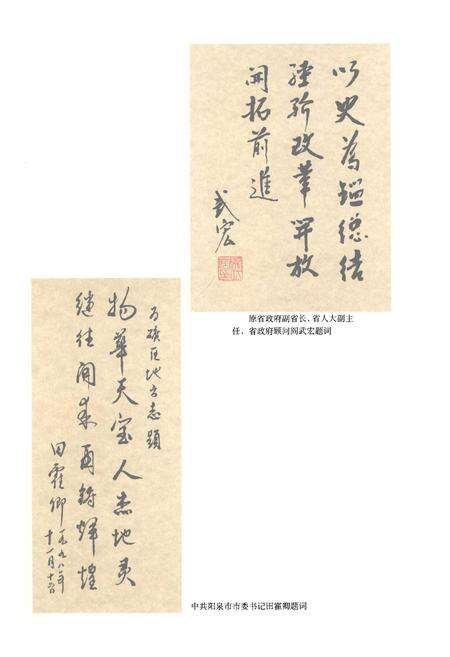 以史為鑑總結
經驗改革開放
開拓前進
武宏
原省政府副省长、省人大副主
任、省政府顾问阎武宏题词
为礦区地方志題
物華天宝人杰地灵
継往開来再鋳輝煌
田霍卿 一九九八年
十一月十日
中共阳泉市市委书记田霍卿题词